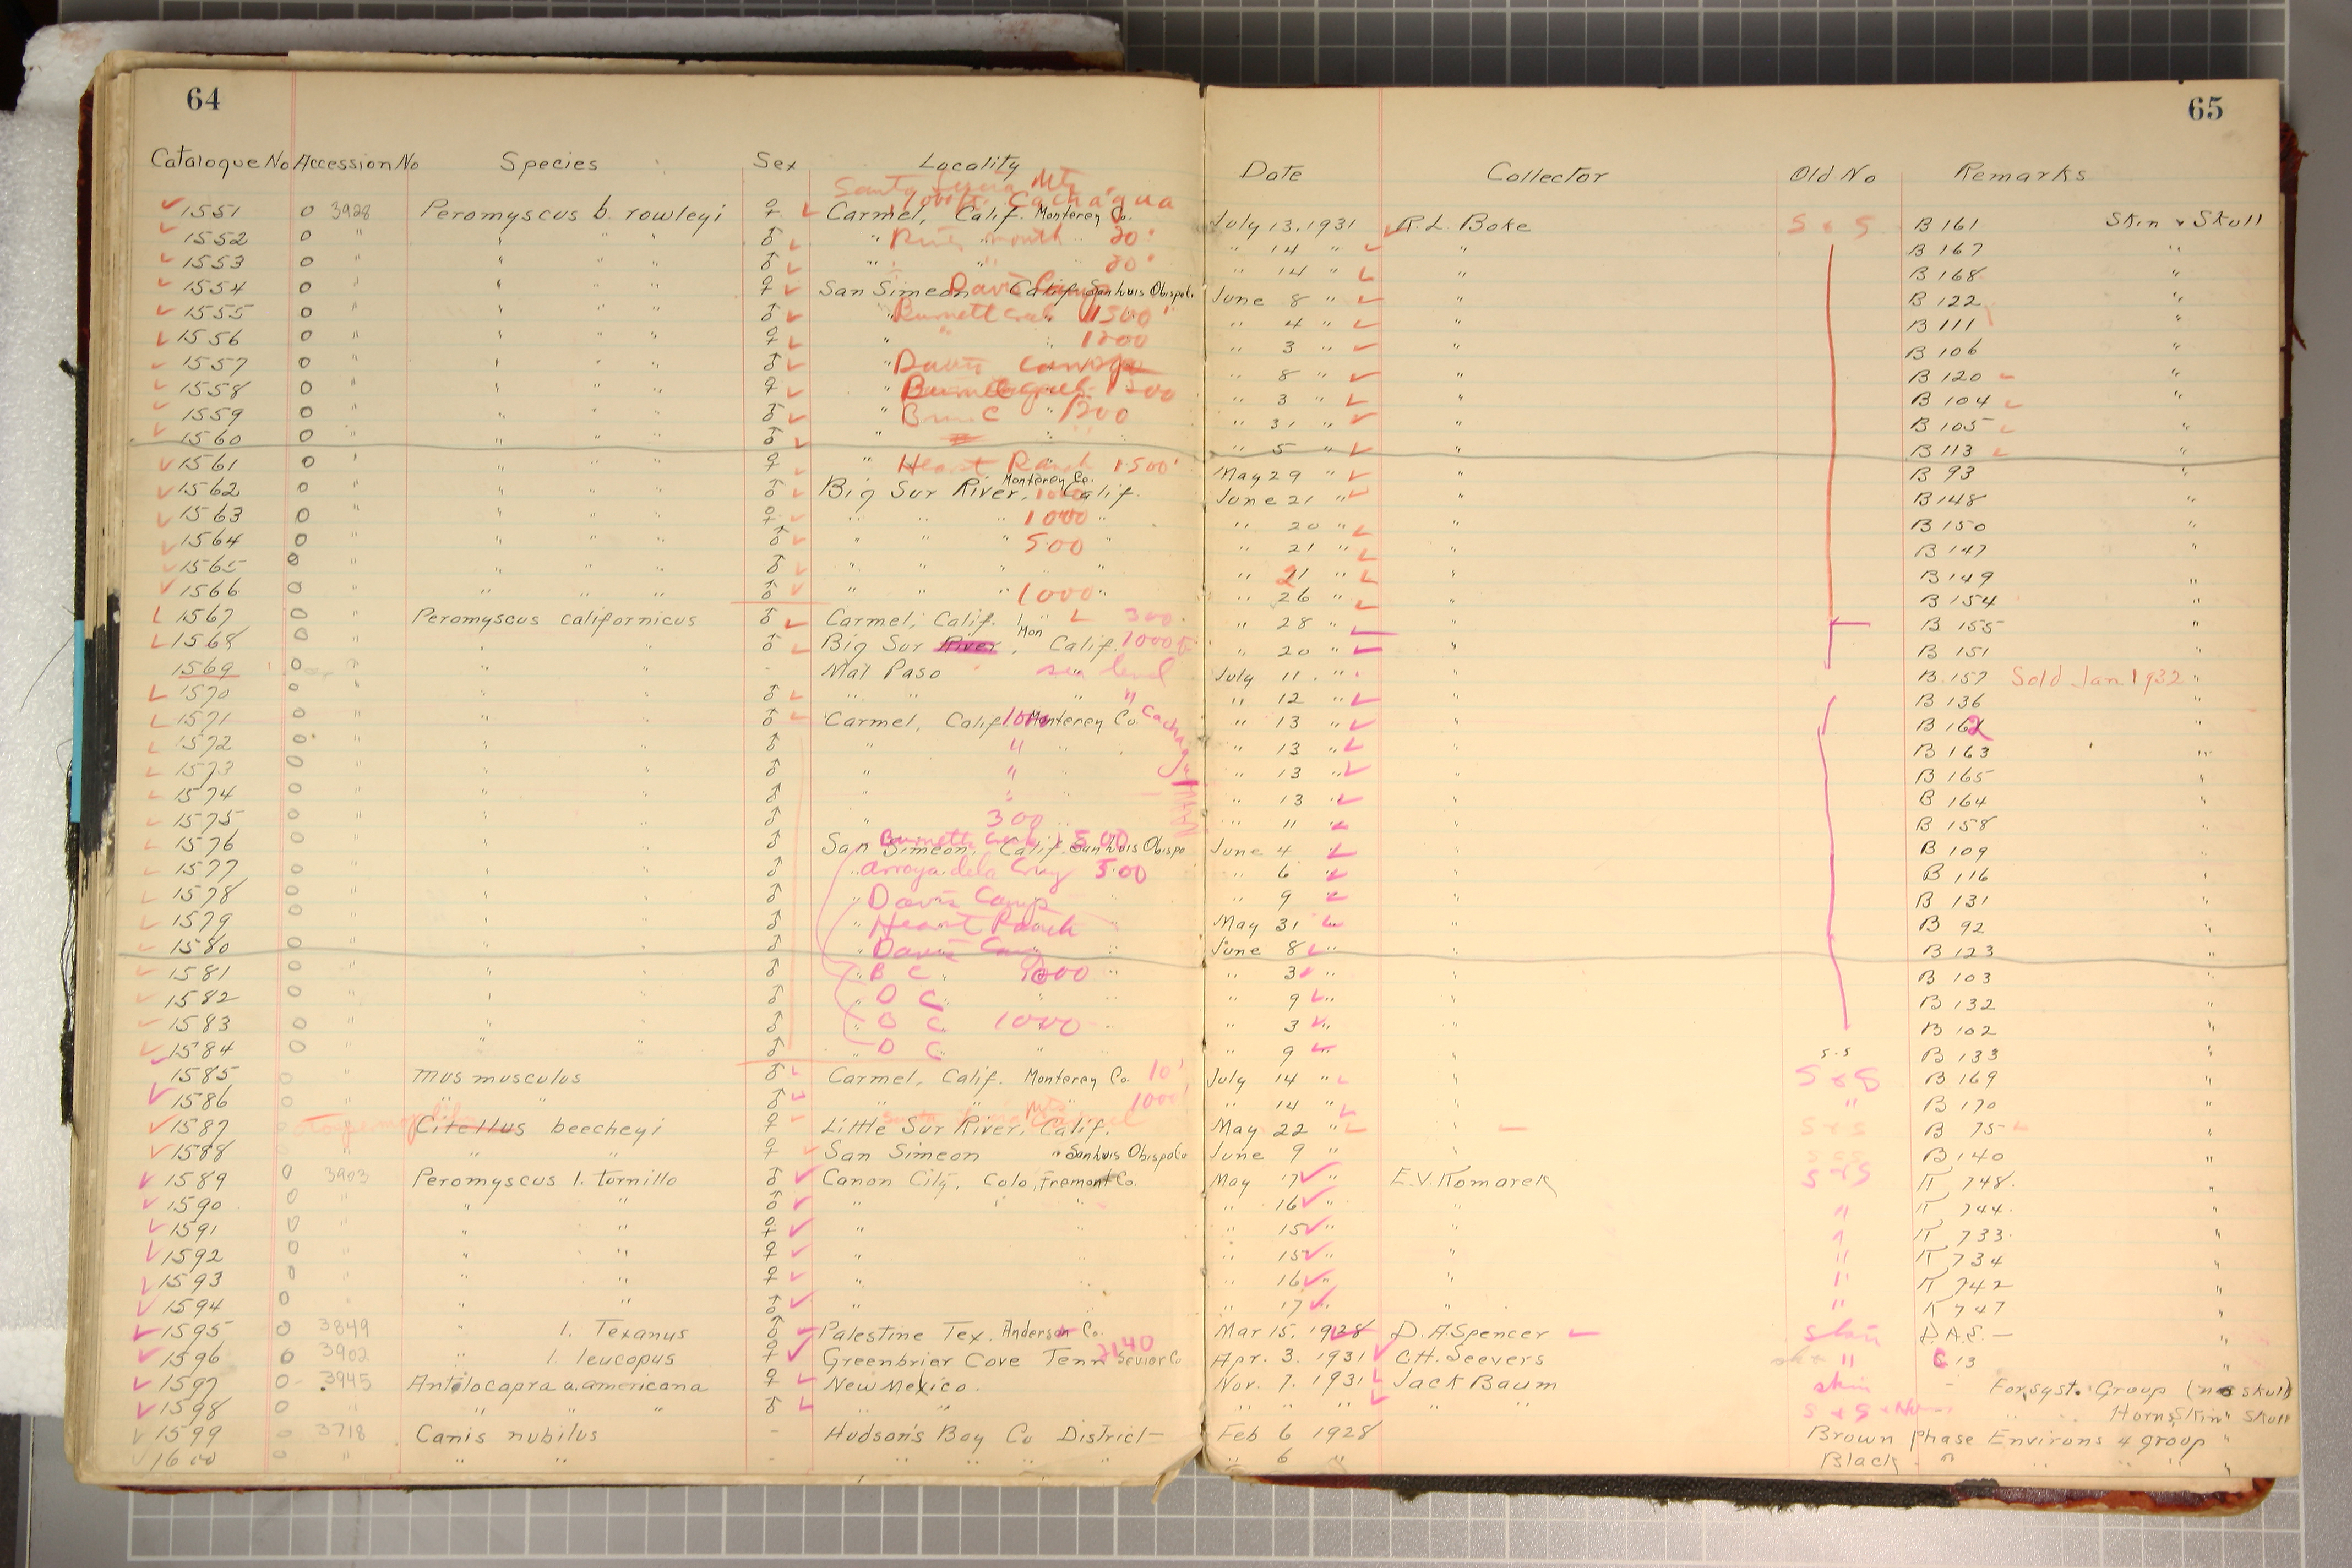 64
65
Catalogue No Accession No Species Sex Locality Date Collector Old No Remarks
Santa Mts
Cachagua
1551 0 3928 Peromyscus b. rowleyi ♀ Carmel, Calif. Monterey Co. July 13, 1931 R. L. Boke S & S B 161 Skin & Skull
1552 0 " " " " ♂ " River mouth 20' " 14 " " B 167 "
1553 0 " " " " ♂ " " 20' " 14 " " B 168 "
1554 0 " " " " ♀ San Simeon Davis Camp Calif. San Luis Obispo Co June 8 " " B 122 "
1555 0 " " " " ♂ " Burnett Creek 1500' " 4 " " B 111 "
1556 0 " " " " ♀ " " 1200 " 3 " " B 106 "
1557 0 " " " " ♂ " Davis Camp " 8 " " B 120 "
1558 0 " " " " ♀ " Burnett Creek 1200 " 3 " " B 104 "
1559 0 " " " " ♂ " C 1200 " 31 " " B 105 "
1560 0 " " " " ♂ " " " 5 " " B 113 "
1561 0 " " " " ♀ " Hearst Ranch 1500' May 29 " " B 93 "
1562 0 " " " " ♂ Big Sur River, Monterey Co. Calif. June 21 " " B 148 "
1563 0 " " " " ♀ " " " 1000 " " 20 " " B 150 "
1564 0 " " " " ♂ " " " 500 " " 21 " " B 147 "
1565 0 " " " " ♂ " " " " " 21 " " B 149 "
1566 0 " " " " ♂ " " " 1000 " " 26 " " B 154 "
1567 0 " Peromyscus californicus ♂ Carmel, Calif. " 300 " 28 " " B 155 "
1568 0 " " " ♂ Big Sur River, Mon Calif. 1000 " 20 " " B 151 "
1569 0 " " " - Mal Paso " sea level July 11 " " B 157 Sold Jan 1932 "
1570 0 " " " ♂ " " " " " 12 " " B 136 "
1571 0 " " " ♂ Carmel, Calif 1000 Monterey Co. " 13 " " B 162 "
1572 0 " " " ♂ " " " " 13 " " B 163 "
1573 0 " " " ♂ " " " " 13 " " B 165 "
1574 0 " " " ♂ " " " 13 " " B 164 "
1575 0 " " " ♂ " 300 " " 11 " " B 158 "
1576 0 " " " ♂ San Simeon, Calif. Burnett Creek 500 San Luis Obispo June 4 " " B 109 "
1577 0 " " " ♂ " arroya dela Cruz 500 " 6 " " B 116 "
1578 0 " " " ♂ " Davis Camp " 9 " " B 131 "
1579 0 " " " ♂ " Hearst Ranch " May 31 " " B 92 "
1580 0 " " " ♂ " Davis Camp " June 8 " " B 123 "
1581 0 " " " ♂ " B C " 3 " " B 103 "
1582 0 " " " ♂ " D C " " 9 " " B 132 "
1583 0 " " " ♂ " B C 1000 " " 3 " " B 102 "
1584 0 " " " ♂ " D C " " 9 " " S.S B 133 "
1585 0 " Mus musculus ♂ Carmel, Calif. Monterey Co. 10' July 14 " " S & S B 169 "
1586 0 " " " ♂ " " " 1000' " 14 " " " B 170 "
1587 0 " Citellus beecheyi ♀ Little Sur River, Calif. May 22 " " S & S B 75 "
1588 " " ♀ San Simeon " San Luis Obispo Co June 9 " B 140 "
1589 0 3903 Peromyscus l. tornillo ♂ Canon City, Colo, Fremont Co. May 17 " E. V. Komarek S & S K 748 "
1590 0 " " " ♂ " " " 16 " " " K 744 "
1591 0 " " " ♀ " " " 15 " " " K 733 "
1592 0 " " " ♀ " " " 15 " " " K 734 "
1593 0 " " " ♀ " " " 16 " " " K 742 "
1594 0 " " " ♂ " " " 17 " " " K 747 "
1595 0 3849 " l. Texanus ♂ Palestine Tex. Anderson Co. Mar 15, 1928 D. A. Spencer Skin D.A.S. — "
1596 0 3902 " l. leucopus ♀ Greenbrier Cove Tenn Sevier Co 2140 Apr. 3, 1931 C. H. Seevers " C 13 "
1597 0 3945 Antilocapra a. americana ♀ New Mexico. Nov. 7. 1931 Jack Baum skin - For syst. Group (no skull)
1598 0 " " " " ♂ " " " " " " " S & S " " Horns, Skin " Skull
1599 0 3718 Canis nubilus - Hudson's Bay Co District Feb 6 1928 Brown Phase Environs 4 group "
1600 0 " " " - " " " " " 6 " Black " " " " "